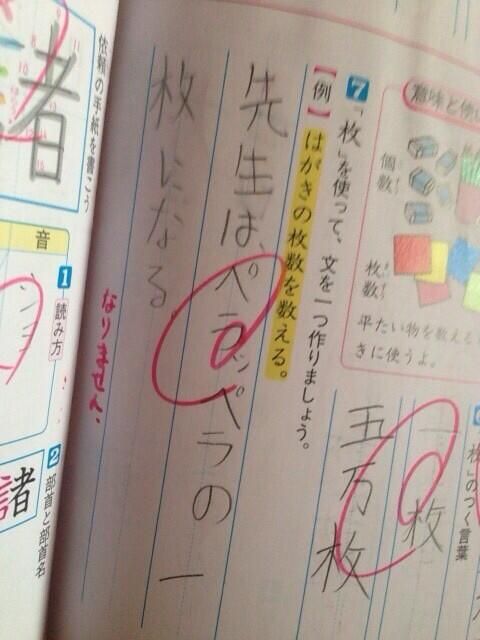 意味と使い
個数
枚数
平たい物を数える
きに使うよ。
のつく言葉
一枚
五万枚
7 「枚」を使って、文を一つ作りましょう。
【例】はがきの枚数を数える。
先生は、ペラッペラの一
枚になる。
なりません、
依頼の手紙を書こう
者
音
1 読み方
ショ
2 部首と部首名
諸